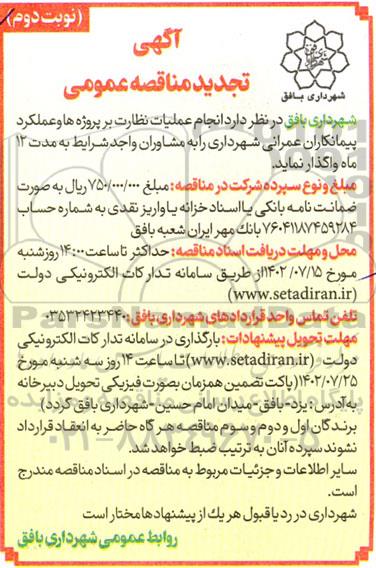 (نوبت دوم)
آگهی
تجدید مناقصه عمومی
شهرداری بافق
شهرداری بافق در نظر دارد انجام عملیات نظارت بر پروژه ها و عملکرد
پیمانکاران عمرانی شهرداری را به مشاوران واجد شرایط به مدت ۱۲
ماه واگذار نماید.
مبلغ و نوع سپرده شرکت در مناقصه: مبلغ ۷۵۰/۰۰۰/۰۰۰ ریال به صورت
ضمانت نامه بانکی یا اسناد خزانه یا واریز نقدی به شماره حساب
۷۶۰۴۱۱۸۷۴۵۹۲۸۴ بانک مهر ایران شعبه بافق
محل و مهلت دریافت اسناد مناقصه: حداکثر تا ساعت ۱۴:۰۰ روز شنبه
مورخ ۱۴۰۲/۰۷/۱۵ از طریق سامانه تدارکات الکترونیکی دولت
(www.setadiran.ir)
تلفن تماس واحد قراردادهای شهرداری بافق: ۰۳۵۳۲۴۲۳۴۴۰
مهلت تحویل پیشنهادات: بارگذاری در سامانه تدارکات الکترونیکی
دولت (www.setadiran.ir) تا ساعت ۱۴ روز سه شنبه مورخ
۱۴۰۲/۰۷/۲۵ (پاکت تضمین همزمان بصورت فیزیکی تحویل دبیرخانه
به آدرس: یزد-بافق-میدان امام حسین-شهرداری بافق گردد)
برندگان اول و دوم و سوم مناقصه هر گاه حاضر به انعقاد قرارداد
نشوند سپرده آنان به ترتیب ضبط خواهد شد.
سایر اطلاعات و جزئیات مربوط به مناقصه در اسناد مناقصه مندرج
است.
شهرداری در رد یا قبول هر یک از پیشنهادها مختار است
روابط عمومی شهرداری بافق